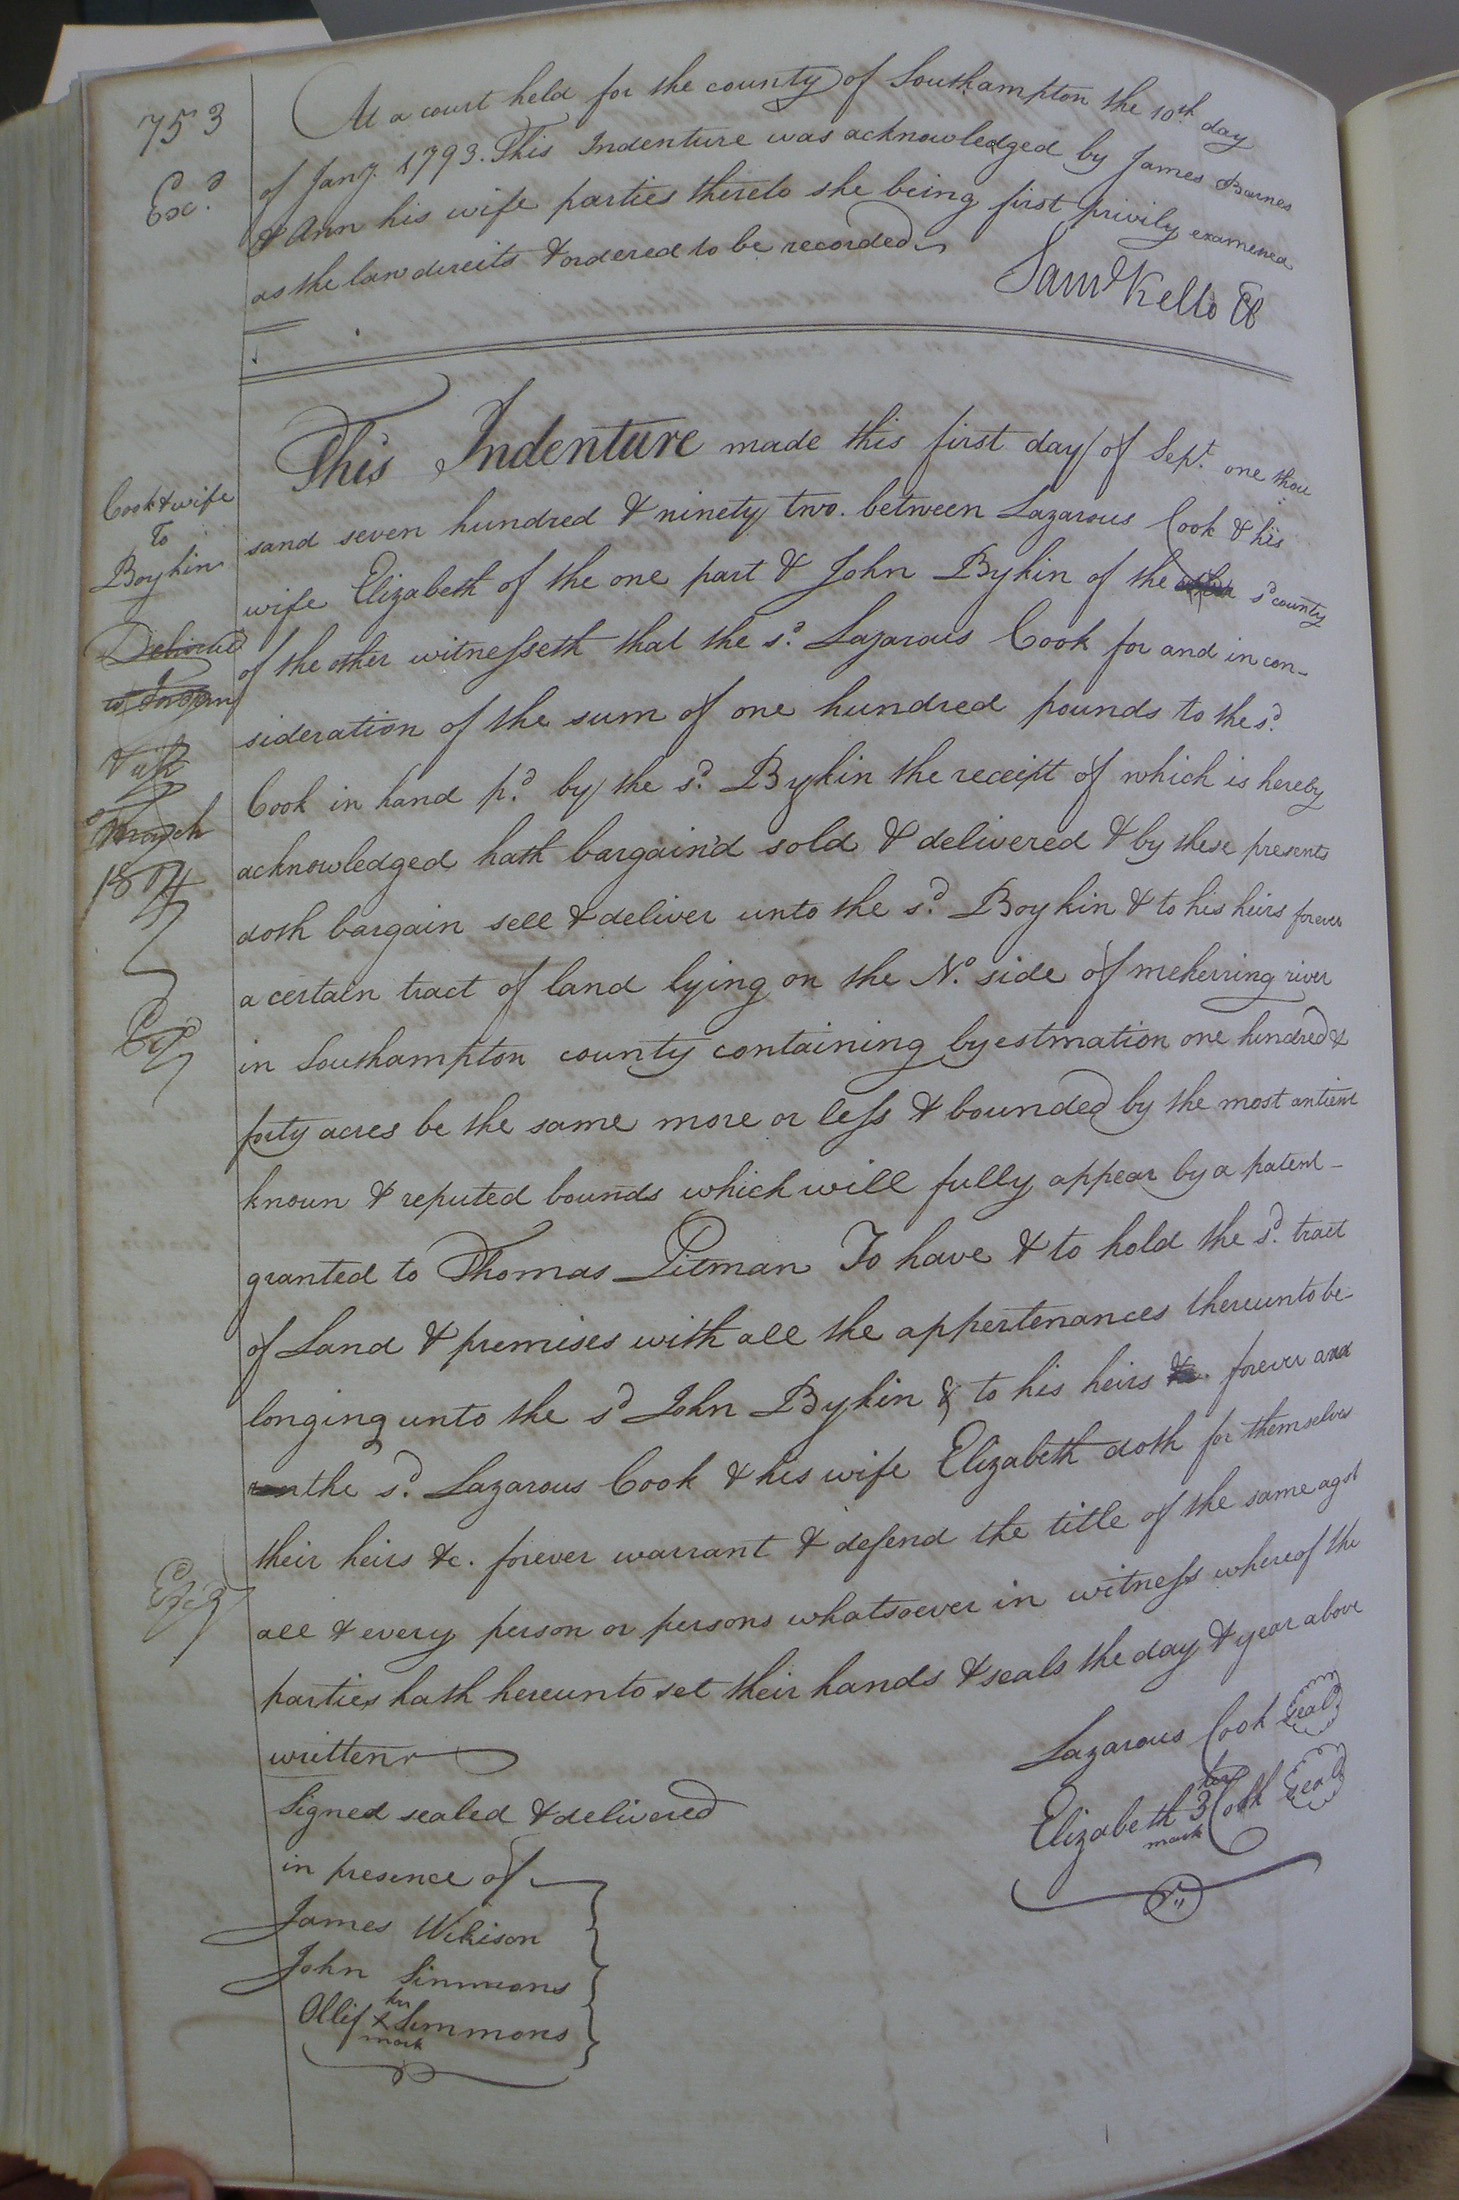 753
Ex.d
At a court held for the county of Southampton the 10th day
of Jany. 1793. This Indenture was acknowledged by James Barnes
& Ann his wife parties thereto she being first privily examened
as the law direits & ordered to be recorded
Saml Kello Cl
Cook & wife
To
Boykin
Delivered
March
1804
Ex.d
This Indenture made this first day of Sept. one thou
sand seven hundred & ninety two. between Lazarous Cook & his
wife Elizabeth of the one part & John Bykin of the sd county
of the other witnesseth that the sd. Lazarous Cook for and in con-
sideration of the sum of one hundred pounds to the sd.
Cook in hand pd. by the sd. Bykin the receipt of which is hereby
acknowledged hath bargain'd sold & delivered & by these presents
doth bargain sell & deliver unto the sd. Boykin & to his heirs forever
a certain tract of land lying on the No. side of meherring river
in Southampton county containing by estmation one hundred &
forty acres be the same more or less & bounded by the most antient
known & reputed bounds which will fully appear by a patent-
granted to Thomas Pitman To have & to hold the sd. tract
of Land & premises with all the appertenances thereunto be
longing unto the sd John Bykin & to his heirs forever and
the sd. Lazarous Cook & his wife Elizabeth doth for themselves
their heirs &c. forever warrant & defend the title of the same agst
Ex.d
all & every person or persons whatsoever in witness whereof the
parties hath hereunto set their hands & seals the day & year above
written
Lazarous Cook Seal
her
Elizabeth 3 Cook Seal
mark
Signed sealed & delivered
in presence of
James Wilkison
John Simmons
her
Ollif x Simmons
mark